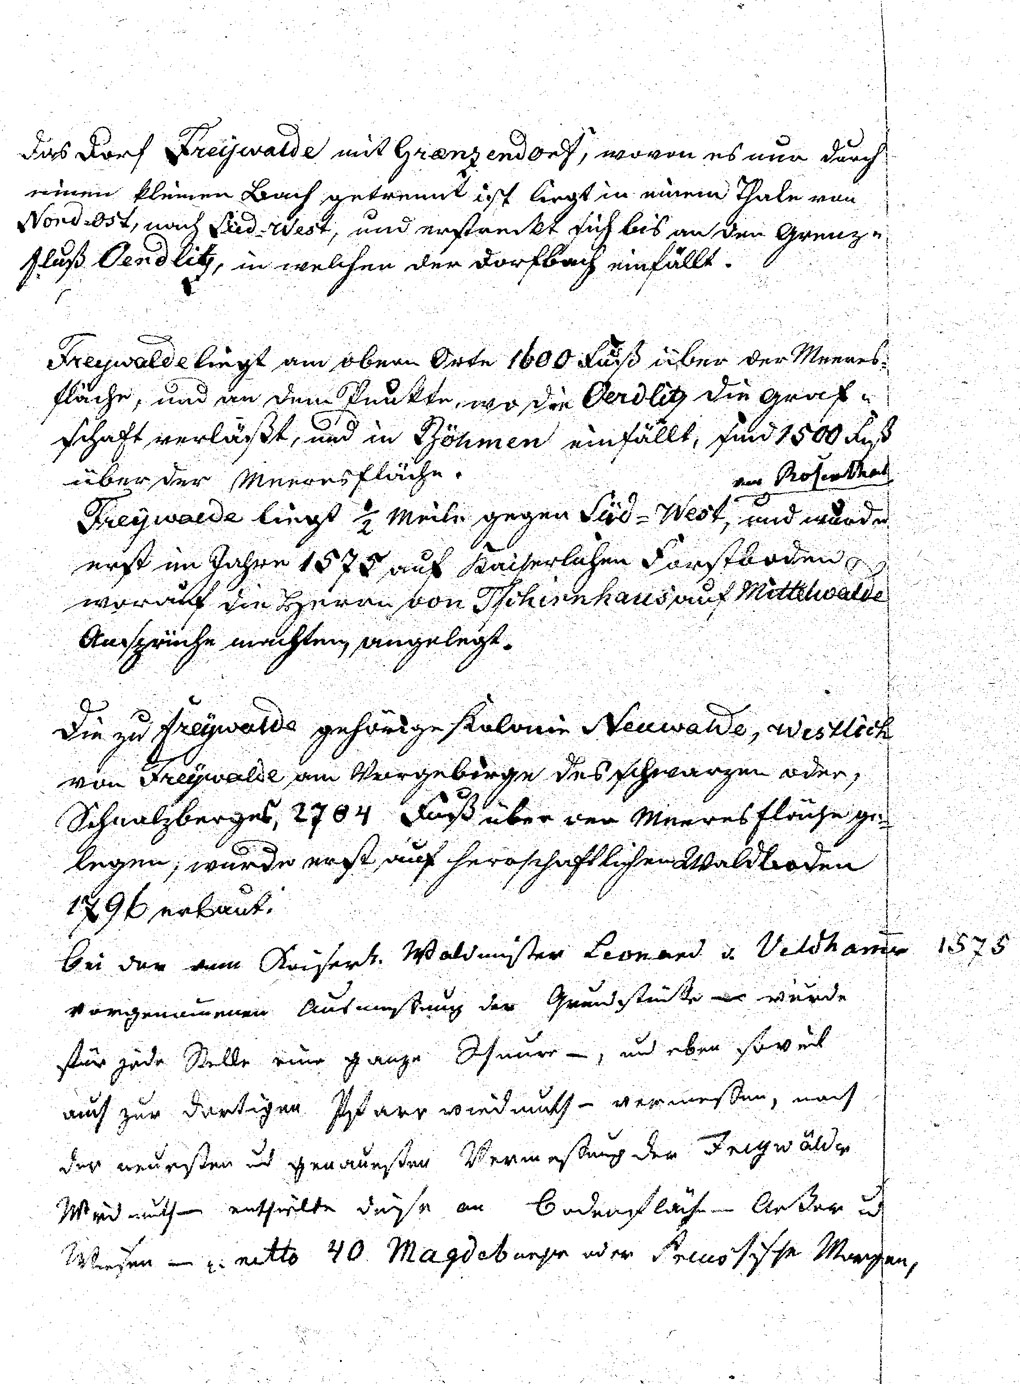 das Dorf Freÿwalde mit Grænzendorf, wovon es nur durch
einen kleinen Bach getrennt ist liegt in einem Thale von
Nord-Ost, nach Süd-West, und erstreckt sich bis an den Grenz-
fluß Oerdlitz, in welchen der Dorfbach einfällt.
Freywalde liegt am obern Orte 1600 Fuß über der Meeres-
fläche, und an dem Punkte, wo die Oerdlitz die Graf-
schaft verläßt, und in Böhmen einfällt, sind 1500 Fuß
über der Meeresfläche.
von Rosenthal
Freÿwalde liegt ½ Meile gegen Süd-West, und wurde
erst im Jahre 1575 auf Kaiserlichen Forstboden
worauf die Herrn von Tschirnhaus auf Mittelwalde
Ansprüche machten, angelegt.
Die zu Freÿwalde gehörige Kolonie Neuwalde, westlich
von Freÿwalde, am Vorgebirge des schwarzen oder,
Schnalzberges, 2704 Fuß über der Meeresfläche ge-
legen, wurde erst auf herrschaftlichen Waldboden
1796 erbaut.
bei der vom Kaiserl. Waldmeister Leonard v. Veldhamer 1575
vorgenommenen Ausmessung der Grundstücke wurde
für jede Stelle eine ganze Schnure –, und eben soviel
auch zur dortigen Pfarrwiedmuth – vermessen, nach
der neuesten und genauesten Vermessung der Freywälder
Wiedmuth – enthielte diese an Bodenfläche – Aeker und
Wiesen – netto 40 Magdeburge oder Preussische Morgen,